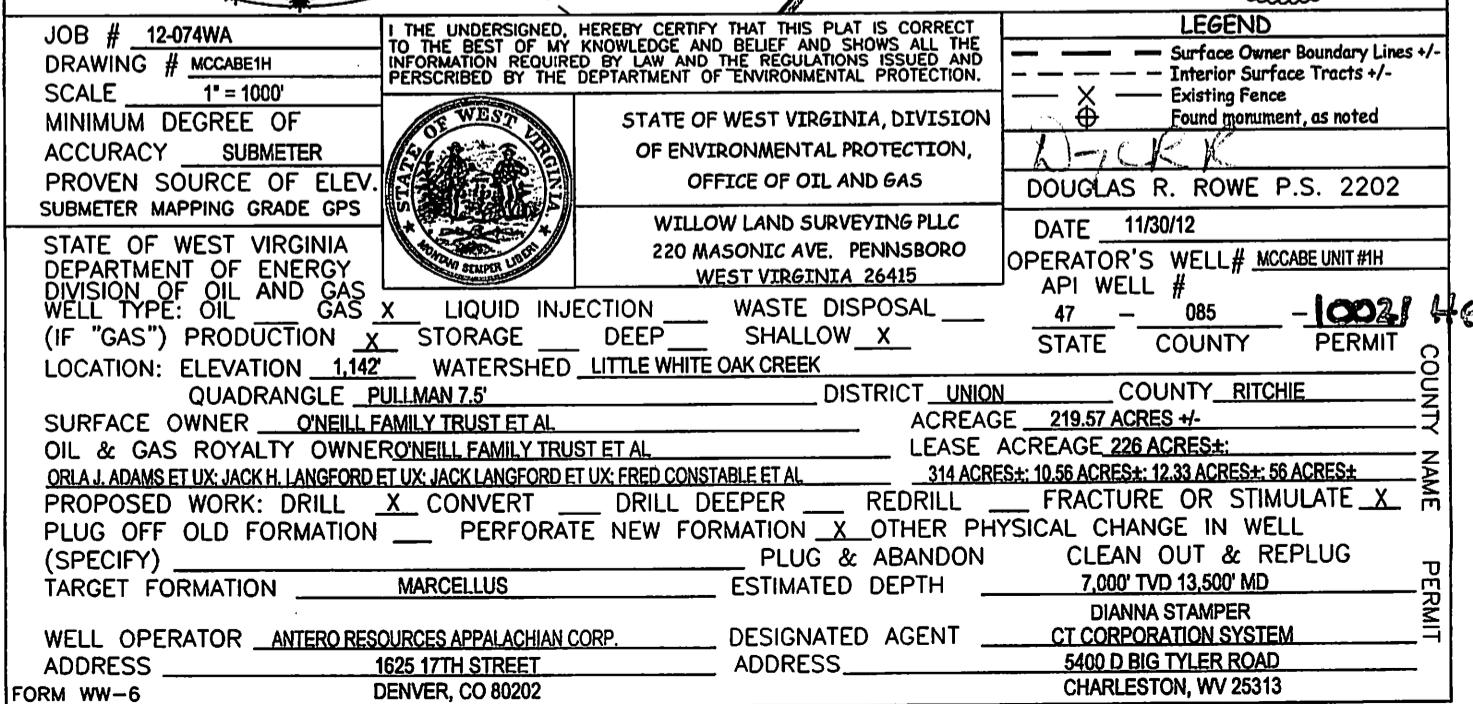 JOB # 12-074WA
DRAWING # MCCABE1H
SCALE 1" = 1000'
MINIMUM DEGREE OF
ACCURACY SUBMETER
PROVEN SOURCE OF ELEV.
SUBMETER MAPPING GRADE GPS
I THE UNDERSIGNED, HEREBY CERTIFY THAT THIS PLAT IS CORRECT
TO THE BEST OF MY KNOWLEDGE AND BELIEF AND SHOWS ALL THE
INFORMATION REQUIRED BY LAW AND THE REGULATIONS ISSUED AND
PERSCRIBED BY THE DEPTARTMENT OF ENVIRONMENTAL PROTECTION.
STATE OF WEST VIRGINIA.
MONTANI SEMPER LIBERI
STATE OF WEST VIRGINIA, DIVISION
OF ENVIRONMENTAL PROTECTION,
OFFICE OF OIL AND GAS
WILLOW LAND SURVEYING PLLC
220 MASONIC AVE. PENNSBORO
WEST VIRGINIA 26415
LEGEND
Surface Owner Boundary Lines +/-
Interior Surface Tracts +/-
X Existing Fence
Found monument, as noted
DOUGLAS R. ROWE P.S. 2202
DATE 11/30/12
OPERATOR'S WELL# MCCABE UNIT #1H
API WELL #
47 - 085 - 10021
STATE COUNTY PERMIT
STATE OF WEST VIRGINIA
DEPARTMENT OF ENERGY
DIVISION OF OIL AND GAS
WELL TYPE: OIL ___ GAS X LIQUID INJECTION ___ WASTE DISPOSAL ___
(IF "GAS") PRODUCTION X STORAGE ___ DEEP ___ SHALLOW X
LOCATION: ELEVATION 1,142' WATERSHED LITTLE WHITE OAK CREEK
QUADRANGLE PULLMAN 7.5' DISTRICT UNION COUNTY RITCHIE
SURFACE OWNER O'NEILL FAMILY TRUST ET AL ACREAGE 219.57 ACRES +/-
OIL & GAS ROYALTY OWNER O'NEILL FAMILY TRUST ET AL LEASE ACREAGE 226 ACRES±;
ORLA J. ADAMS ET UX; JACK H. LANGFORD ET UX; JACK LANGFORD ET UX; FRED CONSTABLE ET AL 314 ACRES±; 10.56 ACRES±; 12.33 ACRES±; 56 ACRES±
PROPOSED WORK: DRILL X CONVERT ___ DRILL DEEPER ___ REDRILL ___ FRACTURE OR STIMULATE X
PLUG OFF OLD FORMATION ___ PERFORATE NEW FORMATION X OTHER PHYSICAL CHANGE IN WELL
(SPECIFY) ___ PLUG & ABANDON CLEAN OUT & REPLUG
TARGET FORMATION MARCELLUS ESTIMATED DEPTH 7,000' TVD 13,500' MD
WELL OPERATOR ANTERO RESOURCES APPALACHIAN CORP.
ADDRESS 1625 17TH STREET
DENVER, CO 80202
DIANNA STAMPER
DESIGNATED AGENT CT CORPORATION SYSTEM
ADDRESS 5400 D BIG TYLER ROAD
CHARLESTON, WV 25313
FORM WW-6
COUNTY NAME
PERMIT